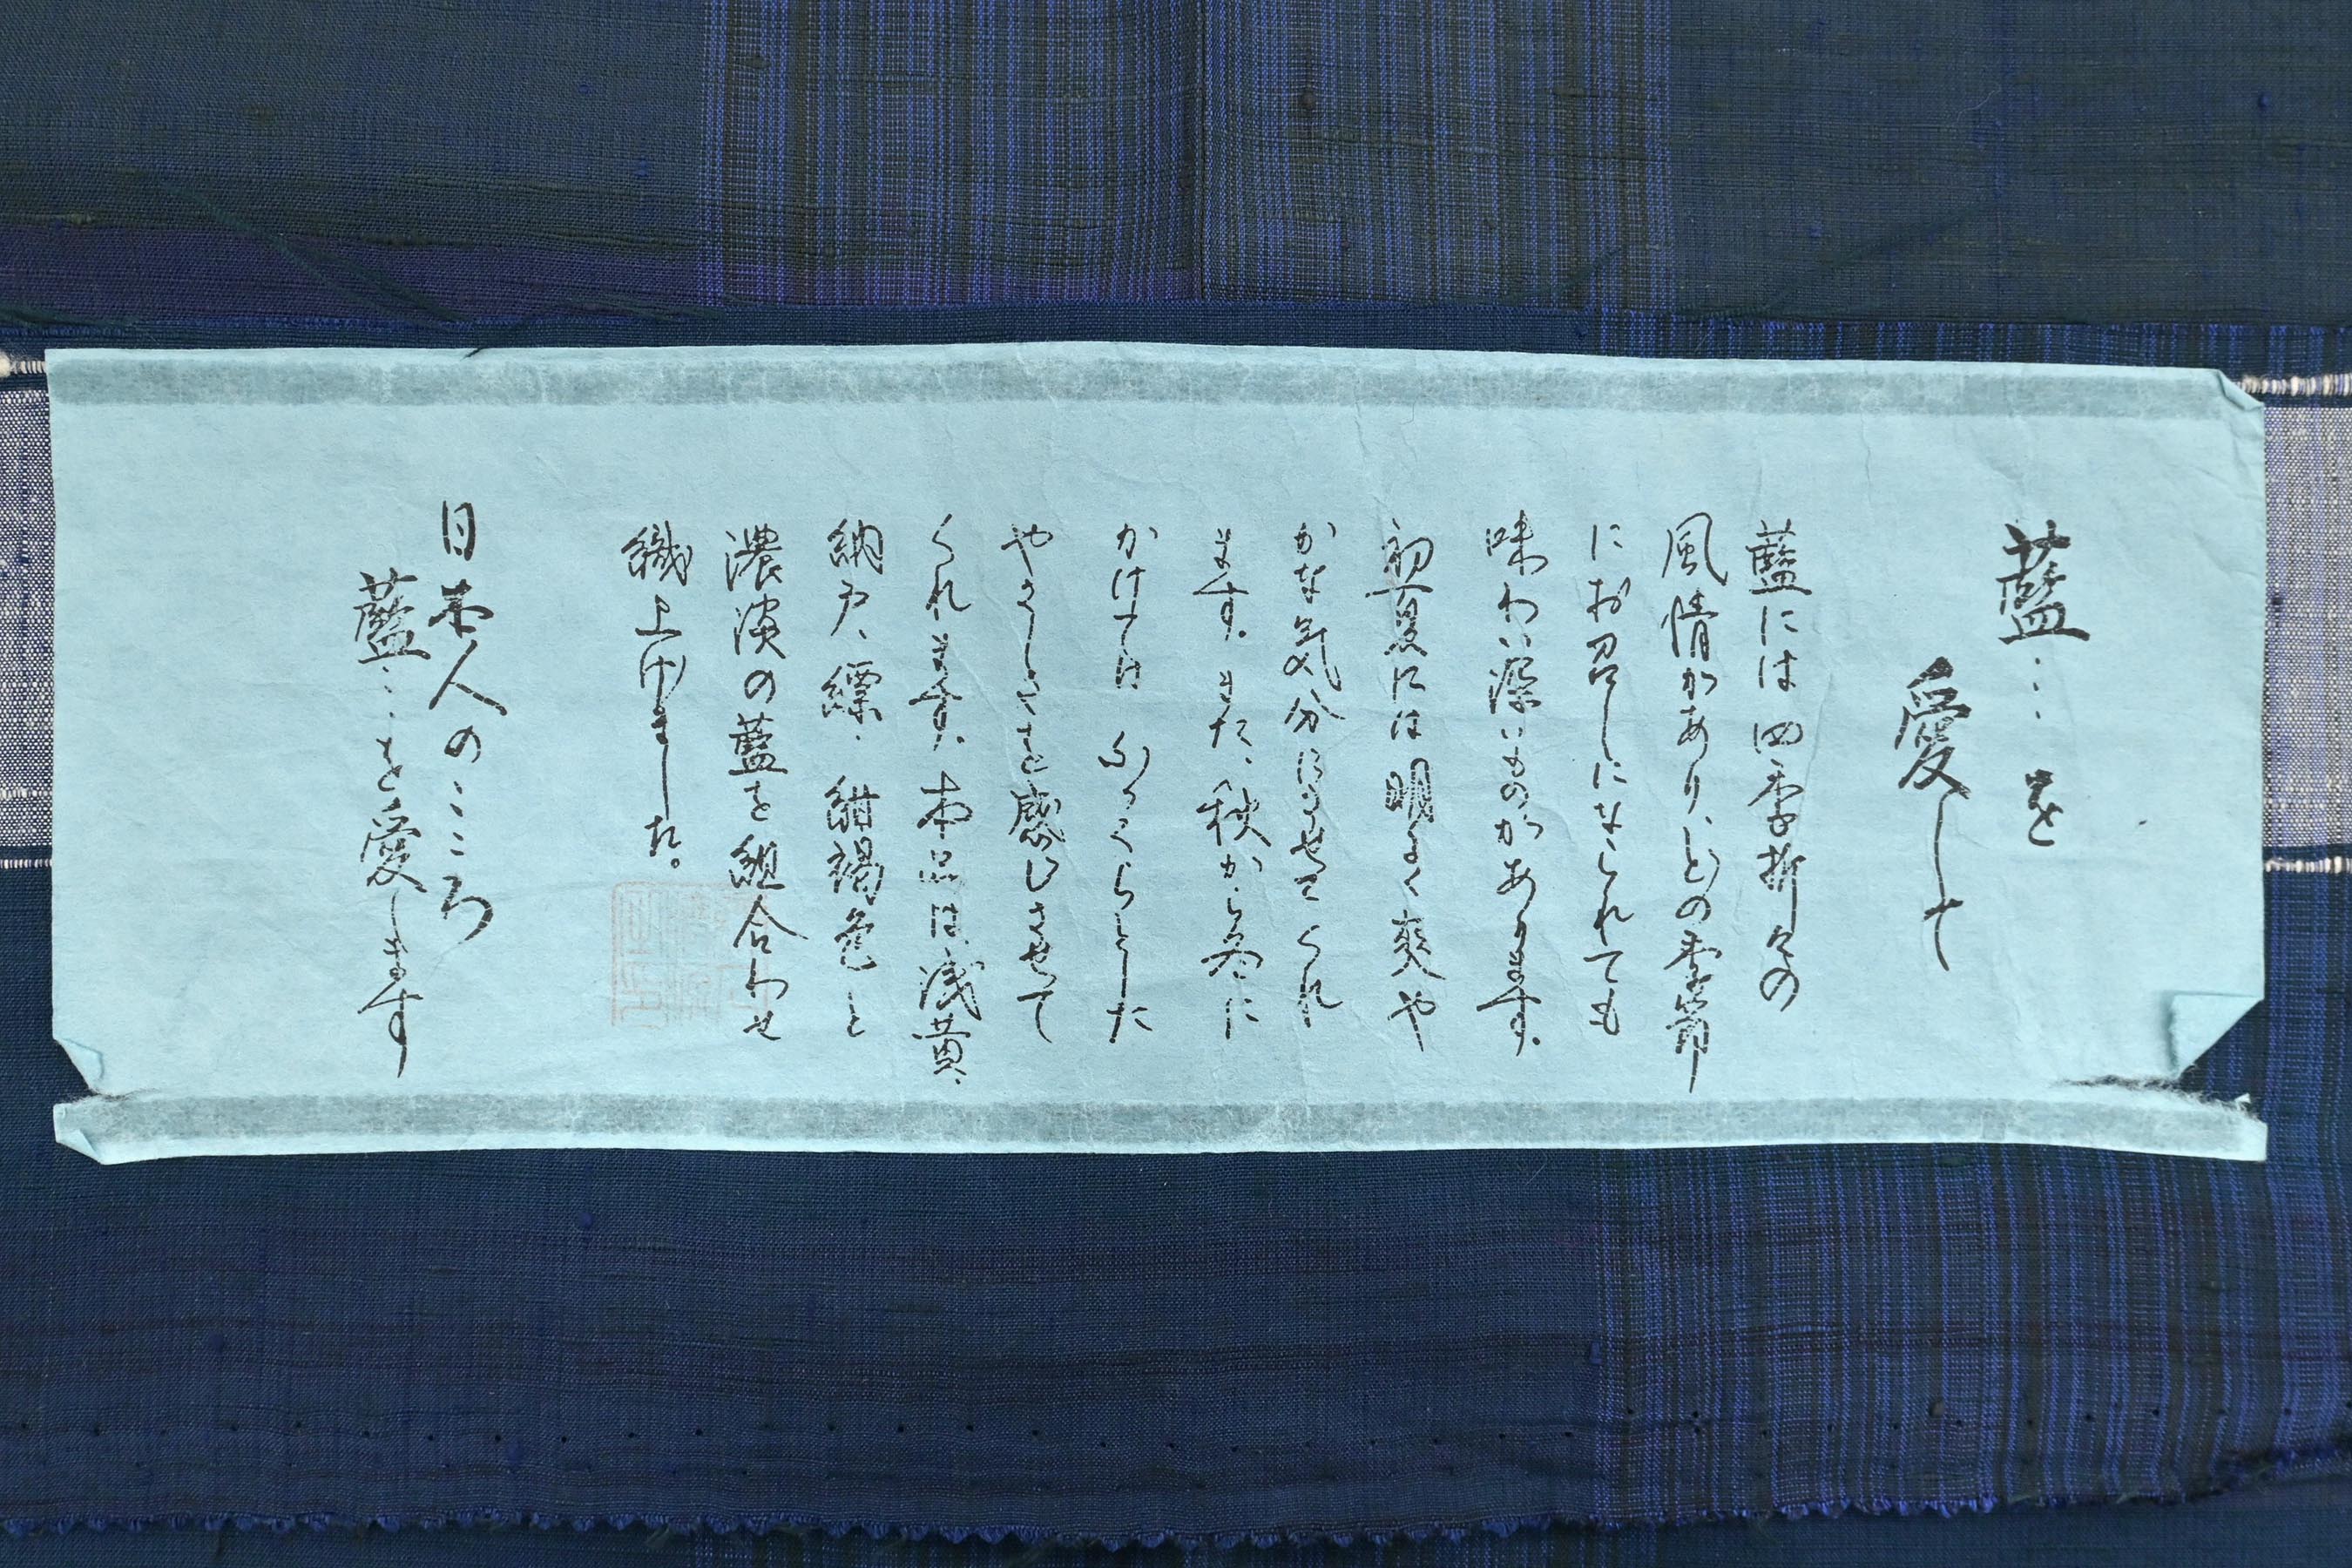 藍……を
愛して
藍には四季折々の
風情があり、どの季節
にお召しになられても
味わい深いものがあります。
初夏には明るく爽や
かな気分にさせてくれ
ます。また、秋から冬に
かけては、ふっくらとした
やさしさを感じさせて
くれます。本品は、浅黄、
納戸、縹、紺、褐色と
濃淡の藍を組合わせ
織上げました。
日本人のこころ
藍……を愛します